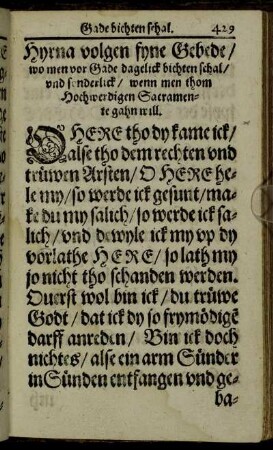 Gade bichten schal. 429
Hyrna volgen fyne Gebede /
wo men vor Gade dagelick bichten schal /
vnd sonderlick / wenn men thom
Hochwerdigen Sacramen-
te gahn will.
O HERE tho dy kame ick /
alse tho dem rechten vnd
trüwen Arsten / O HERE he-
le my / so werde ick gesunt / ma-
ke du my salich / so werde ick sa-
lich / vnd dewyle ick my vp dy
vörlathe HERE / so lath my
jo nicht tho schanden werden.
Ouerst wol bin ick / du trüwe
Godt / dat ick dy so frymödigē
darff anreden / Bin ick doch
nichtes / alse ein arm Sünder
in Sünden entfangen vnd ge-
ba-